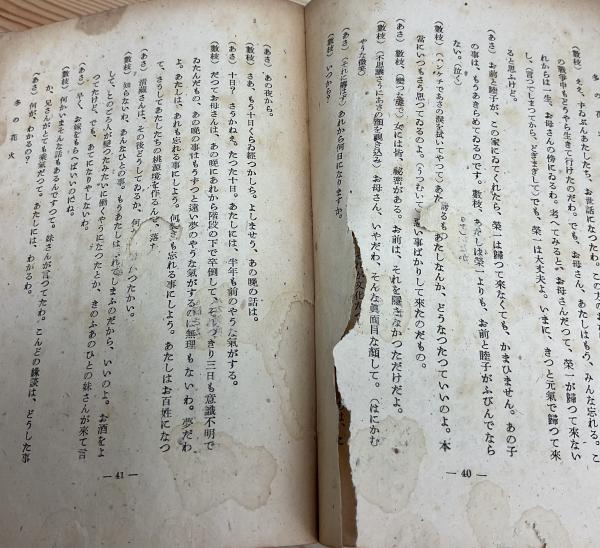 (數枝) ええ、すみませ
の戰爭中もどうやら生きて行けたのだわ。でも、お母さん、あたしたちはもう、みんな忘れる
れからは一生、お母さんの傍にゐるわ。考へてみると、お母さんだつて、榮一が歸つて來ない
し、(言つてしまつてから、どぎまぎして)でも、榮一は大丈夫よ。いまに、きつと元氣で歸つて來
ると思ふけど。
(あさ) お前と睦子が、この家にゐてくれたら、榮一は歸つて來なくても、かまひません。あの子
の事は、もうあきらめてゐるのです。數枝、あたしは榮一よりも、お前と睦子がふびんでなら
ない。(泣く)
(數枝) (ハンケチであさの淚を拭いてやつて)あたし
なんか、どうなつたつていいのよ。本
當にいつもさう思つてゐるのよ。(うつむいて)
い事ばかりして來たのだもの。
(あさ) 數枝、(變つた聲で)女には皆、祕密がある。お前は、それを隱さなかつただけだよ。
(數枝) (不思議さうにあさの顏を覗き込み)お母さん、いやだわ、そんな眞面目な顏して。(はにかむ
やうな微笑)
(あさ) (それに構はず)あれから何日になりますか。
(數枝) いつから?
— 40 —
(あさ) あの夜から。
(數枝) さあ、もう十日くらゐ經つかしら。よしませう、あの晚の話は。
(あさ) 十日? さうかねえ。たつた十日。あたしには、半年も前のやうな氣がする。
(數枝) だつてお母さんは、あの晚にあれから階段の下で卒倒して、それつきり三日も意識不明で
ゐたんだもの、あの晚の事はもうずつと遠い夢のやうな氣がするのに無理もないわ。夢だわ
よ、あたしは、あれも忘れる事にしよう。何もかも忘れる事にしよう。あたしはお百姓になつ
て、さうしてあたしたちの桃源境を作るんだ。
(あさ) 清藏さんは、その後どうしてゐるか、何
つたかい。
(數枝) 知らないわ、あんなひとの事。もうあたしは、
しまふのだから、いいのよ。お酒をよ
して、とのどの人が變つたみたいに働くやうになつたとか、きのふあのひとの妹さんが來て言
つてたけど、でも、あてになりやしないわ。
(あさ) 早く、お嫁をもらへばいいのにね。
(數枝) 何かいまそんな話もあるんですつて。妹さんが言つてたわ。こんどの緣談は、どうした事
か、兄さんがとても乘氣だつて。あたしには、わかるわ。
(あさ) 何が、わかるの?
冬の花火
— 41 —